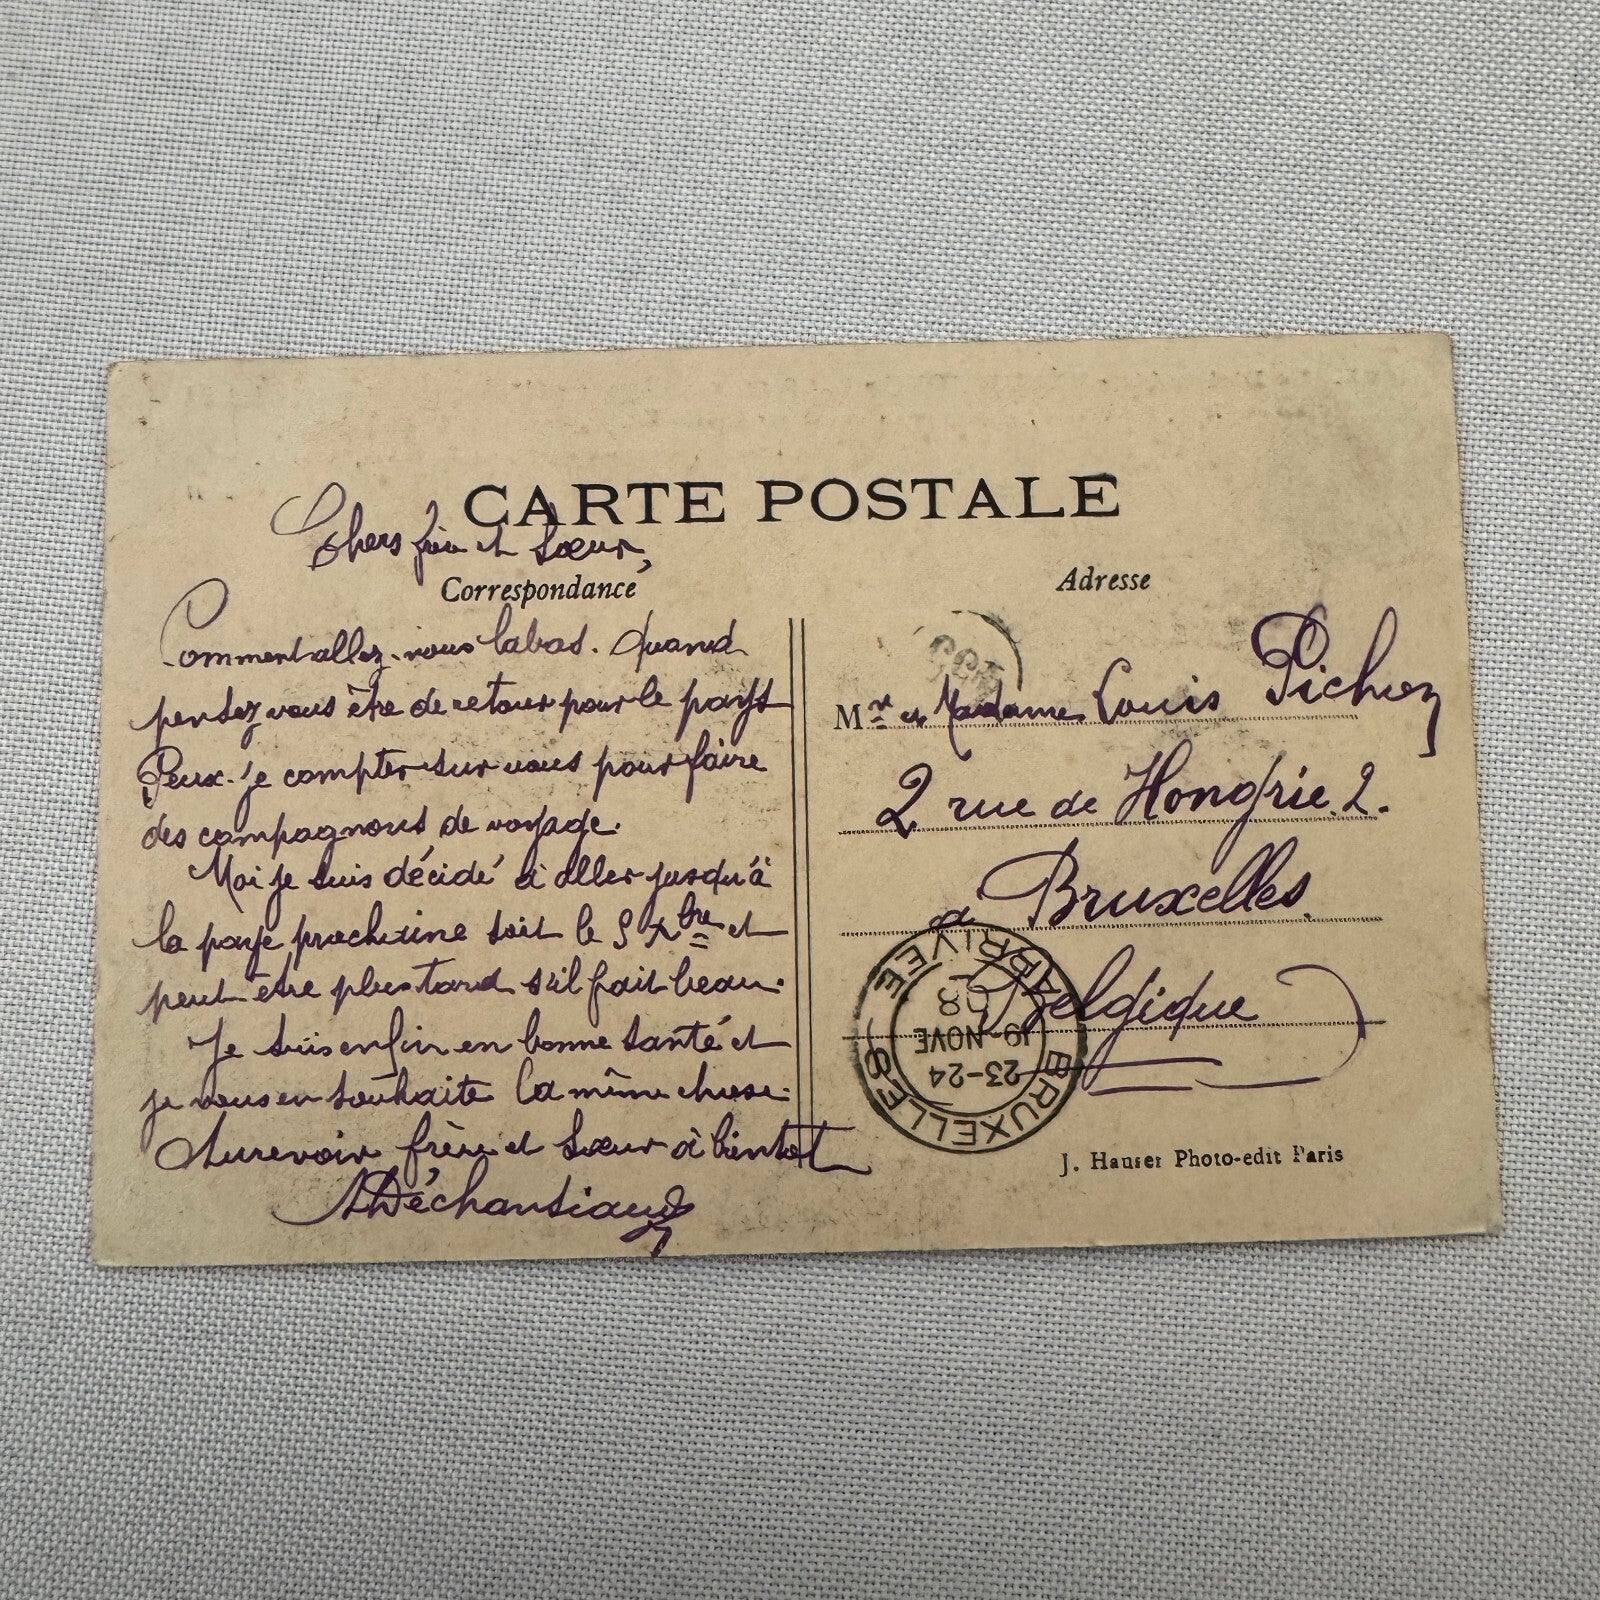 CARTE POSTALE
Chers frère et Sœur,
Correspondance
Commentallez-vous labas. Quand
pensez vous être de retour pour le pays
Peux-je compter sur vous pour faire
des compagnons de voyage.
Moi je suis décidé à aller jusqu'à
la paye prochaine soit le 5 Xbre et
peut être plus tard s'il fait beau.
Je suis enfin en bonne santé et
je vous en souhaite la même chose.
Aurevoir frère et Sœur à bientot
Déchansiaud
Adresse
Mr et Madame Louis Pichon
2 rue de Hongrie 2.
a Bruxelles
Belgique
BRUXELLES
ARRIVEE
23-24
19 NOVE
08
J. Hauser Photo-edit Paris